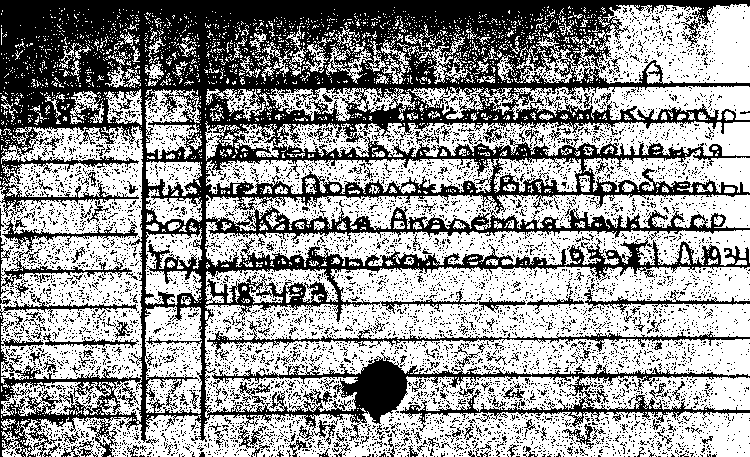 А
Основы культур-
ных растений в условиях орошения
Нижнего Поволжья (В кн. Проблемы
Волго-Каспия. Академия Наук СССР
Труды ноябрьской сессии 1933 Л 1934
стр 418-423)